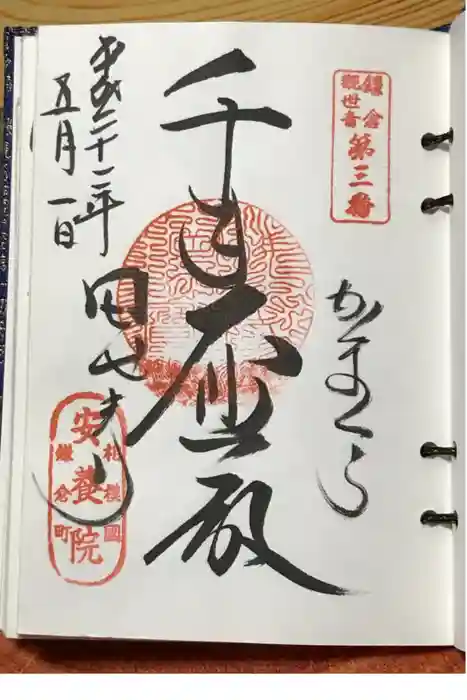 鎌倉
觀世音
第三番
かまくら
千手 殿
平成二十二年
五月一日
田
相模國
安養院
鎌倉町